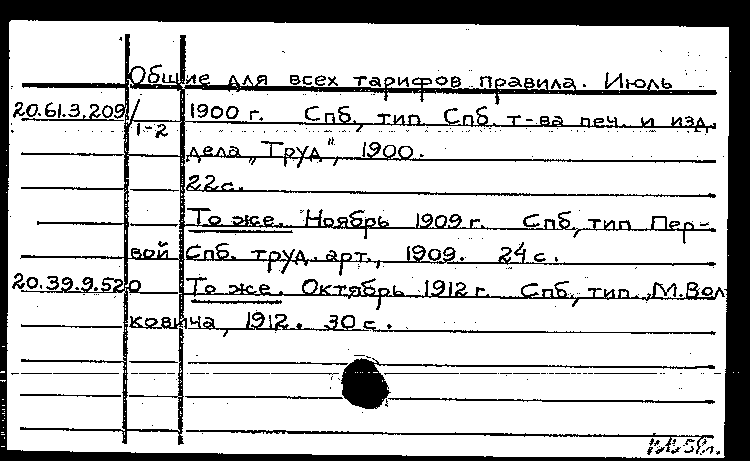 Общие для всех тарифов правила. Июль
20.61.3.209/1-2 1900 г. Спб., тип. Спб. т-ва печ. и изд.
дела „Труд", 1900.
22с.
То же. Ноябрь 1909 г. Спб, тип Пер-
вой Спб. труд. арт., 1909. 24 с.
20.39.9.520 То же. Октябрь 1912 г. Спб., тип. М.Вол
ковича, 1912. 30 с.